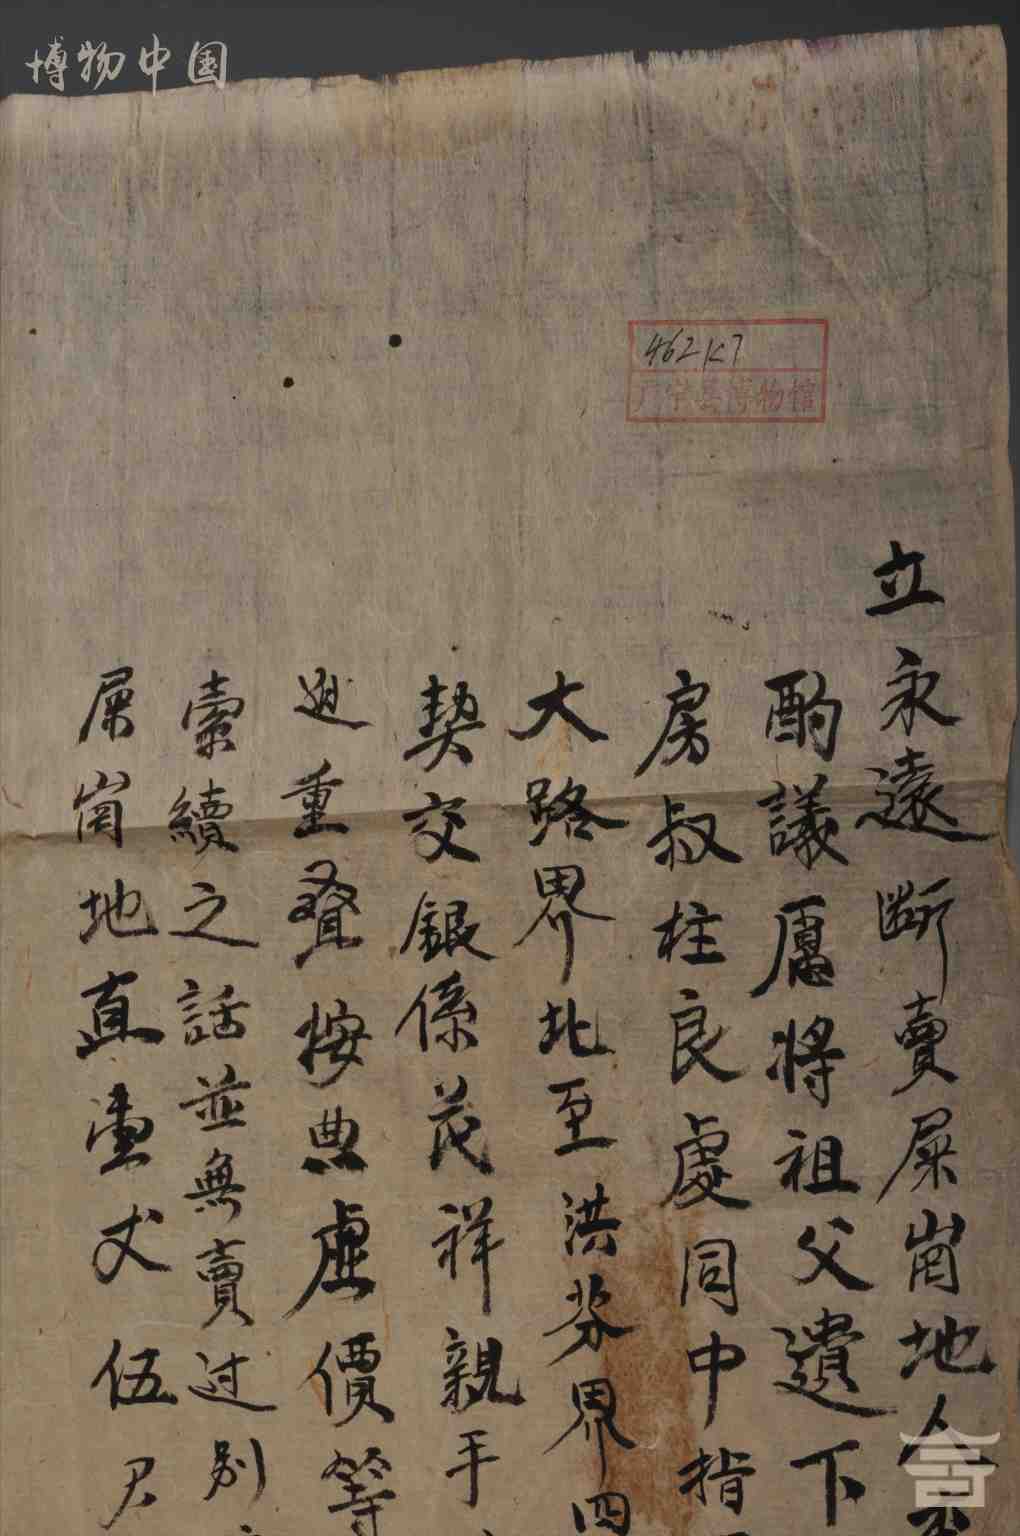 博物中国
462 K7
广宁县博物馆
立永遠断賣屎崗地人
酌議愿將祖父遺下
房叔柱良處同中指
大路界北至洪芬界四
契交銀係茂祥親手
迯重叠按典虛價等
索續之話並無賣过别
屎崗地直壹丈伍尺